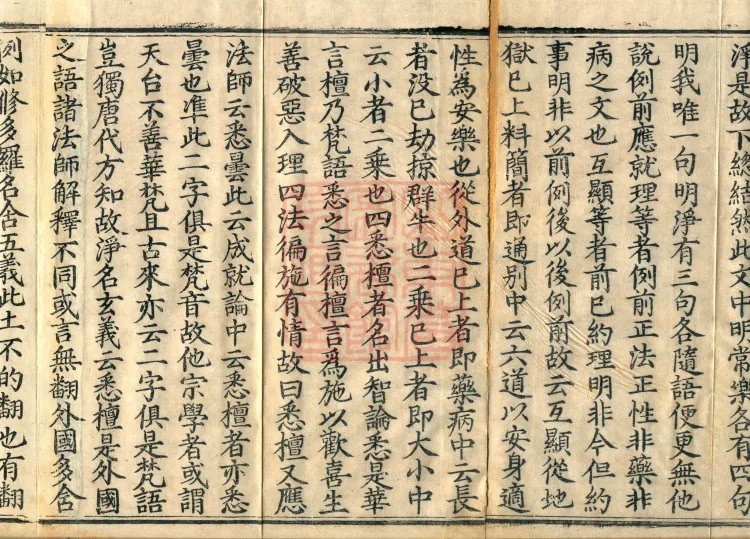 淨是故下總結然此文中明常樂各有四句
明我唯一句明淨有三句各隨語便更無他
說例前應就理等者例前正法正性非藥非
病之文也互顯等者前巳約理明非今但約
事明非以前例後以後例前故云互顯從地
獄巳上料簡者即通別中云六道以安身適
性為安樂也從外道巳上者即藥病中云長
者没巳劫掠群牛也二乗巳上者即大小中
云小者二乗也四悉檀者名出智論悉是華
言檀乃梵語悉之言徧檀言為施以歡喜生
善破惡入理四法徧施有情故曰悉檀又應
法師云悉曇此云成就論中云悉檀者亦悉
曇也准此二字俱是梵音故他宗學者或謂
天台不善華梵且古來亦云二字俱是梵語
豈獨唐代方知故淨名玄義云悉檀是外國
之語諸法師解釋不同或言無翻外國多含
例如修多羅名含五義此土不的翻也有翻